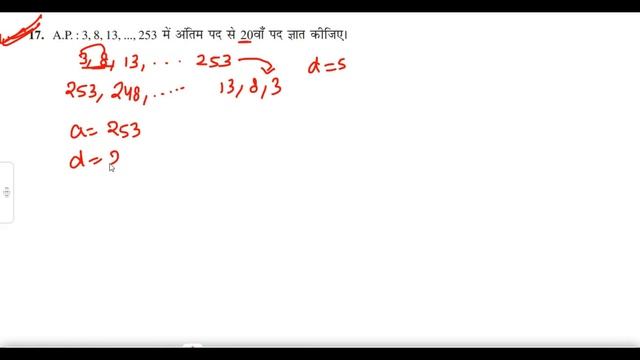 17. A.P. : 3, 8, 13, ..., 253 में अंतिम पद से 20वाँ पद ज्ञात कीजिए।
3, 8, 13, ... 253
d=5
253, 248, ..... 13, 8, 3
a= 253
d= ?